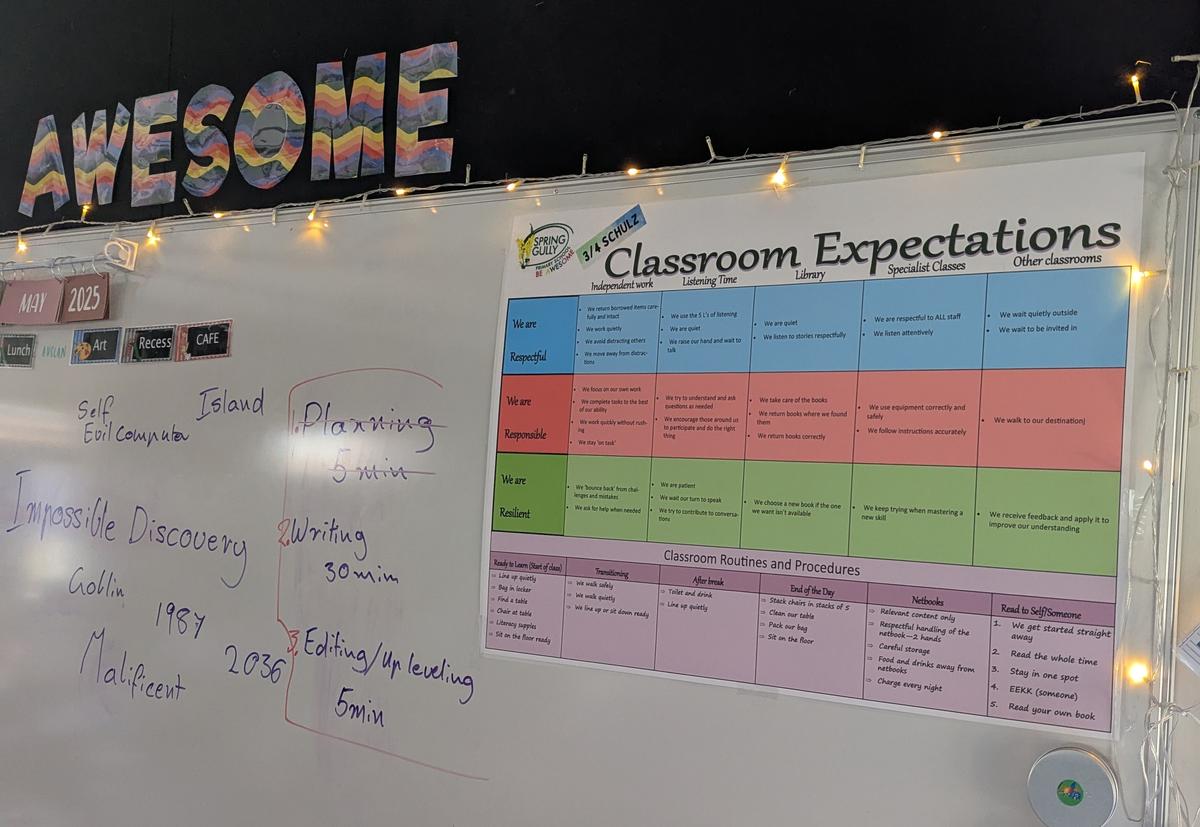 AWESOME
MAY 2025
Lunch
AUSLAN
Art
Recess
CAFE
Self
Evil computer
Island
Impossible Discovery
Goblin
1987
Malificent
2036
1. Planning
5 min
2. Writing
30 min
3. Editing/Up leveling
5 min
SPRING
GULLY
PRIMARY SCHOOL
BE AWESOME
3/4 SCHULZ
Classroom Expectations
Independent work
Listening Time
Library
Specialist Classes
Other classrooms
We are
Respectful
• We return borrowed items care-
fully and intact
• We work quietly
• We avoid distracting others
• We move away from distrac-
tions
• We use the 5 L's of listening
• We are quiet
• We raise our hand and wait to
talk
• We are quiet
• We listen to stories respectfully
• We are respectful to ALL staff
• We listen attentively
• We wait quietly outside
• We wait to be invited in
We are
Responsible
• We focus on our own work
• We complete tasks to the best
of our ability
• We work quickly without rush-
ing
• We stay 'on task'
• We try to understand and ask
questions as needed
• We encourage those around us
to participate and do the right
thing
• We take care of the books
• We return books where we found
them
• We return books correctly
• We use equipment correctly and
safely
• We follow instructions accurately
• We walk to our destination)
We are
Resilient
• We 'bounce back' from chal-
lenges and mistakes
• We ask for help when needed
• We are patient
• We wait our turn to speak
• We try to contribute to conversa-
tions
• We choose a new book if the one
we want isn't available
• We keep trying when mastering a
new skill
• We receive feedback and apply it to
improve our understanding
Classroom Routines and Procedures
Ready to Learn (Start of class)
⇒ Line up quietly
⇒ Bag in locker
⇒ Find a table
⇒ Chair at table
⇒ Literacy supples
⇒ Sit on the floor ready
Transitioning
⇒ We walk safely
⇒ We walk quietly
⇒ We line up or sit down ready
After break
⇒ Toilet and drink
⇒ Line up quietly
End of the Day
⇒ Stack chairs in stacks of 5
⇒ Clean our table
⇒ Pack our bag
⇒ Sit on the floor
Netbooks
⇒ Relevant content only
⇒ Respectful handling of the
netbook—2 hands
⇒ Careful storage
⇒ Food and drinks away from
netbooks
⇒ Charge every night
Read to Self/Someone
1. We get started straight
away
2. Read the whole time
3. Stay in one spot
4. EEKK (someone)
5. Read your own book